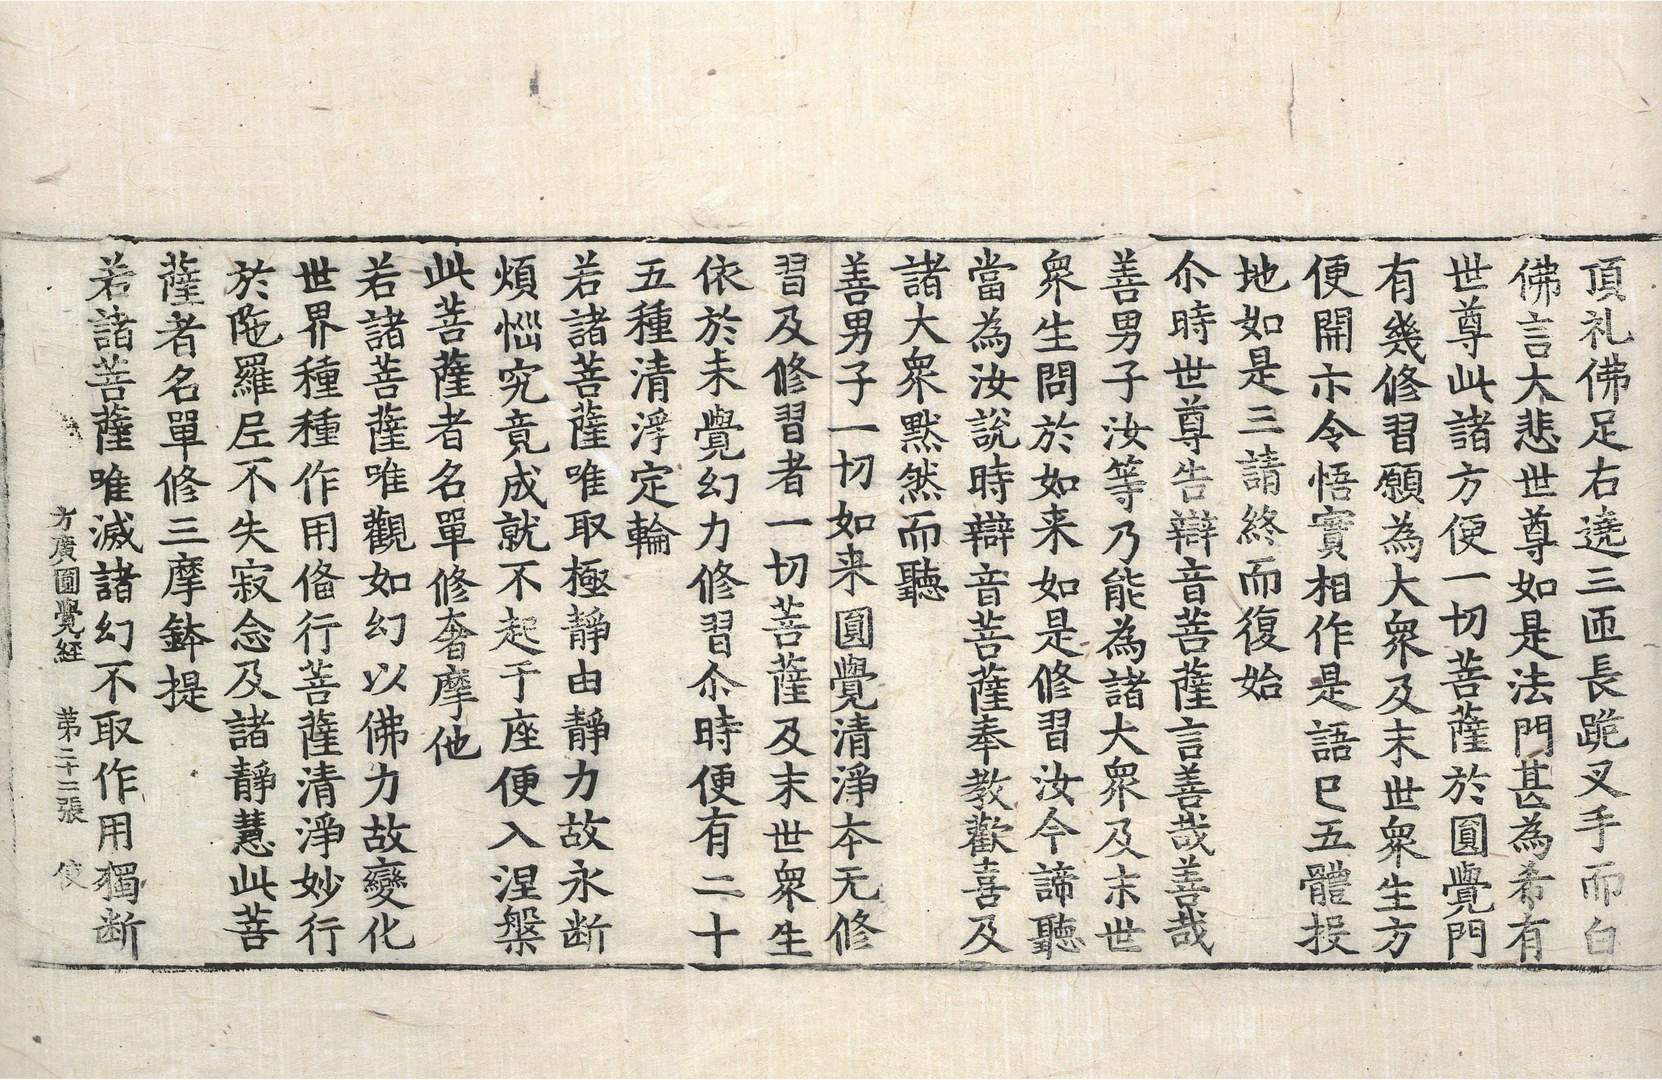 頂礼佛足右遶三匝長跪叉手而白
佛言大悲世尊如是法門甚為希有
世尊此諸方便一切菩薩於圓覺門
有幾修習願為大衆及末世衆生方
便開示令悟實相作是語已五體投
地如是三請終而復始
尒時世尊告辯音菩薩言善哉善哉
善男子汝等乃能為諸大衆及末世
衆生問於如来如是修習汝今諦聽
當為汝說時辯音菩薩奉教歡喜及
諸大衆默然而聽
善男子一切如来圓覺清淨本无修
習及修習者一切菩薩及末世衆生
依於未覺幻力修習尒時便有二十
五種清淨定輪
若諸菩薩唯取極靜由靜力故永断
煩惱究竟成就不起于座便入涅槃
此菩薩者名單修奢摩他
若諸菩薩唯觀如幻以佛力故變化
世界種種作用俻行菩薩清淨妙行
於陁羅尼不失寂念及諸靜慧此菩
薩者名單修三摩鉢提
若諸菩薩唯滅諸幻不取作用獨断
方廣圓覺経 苐二十二張 使